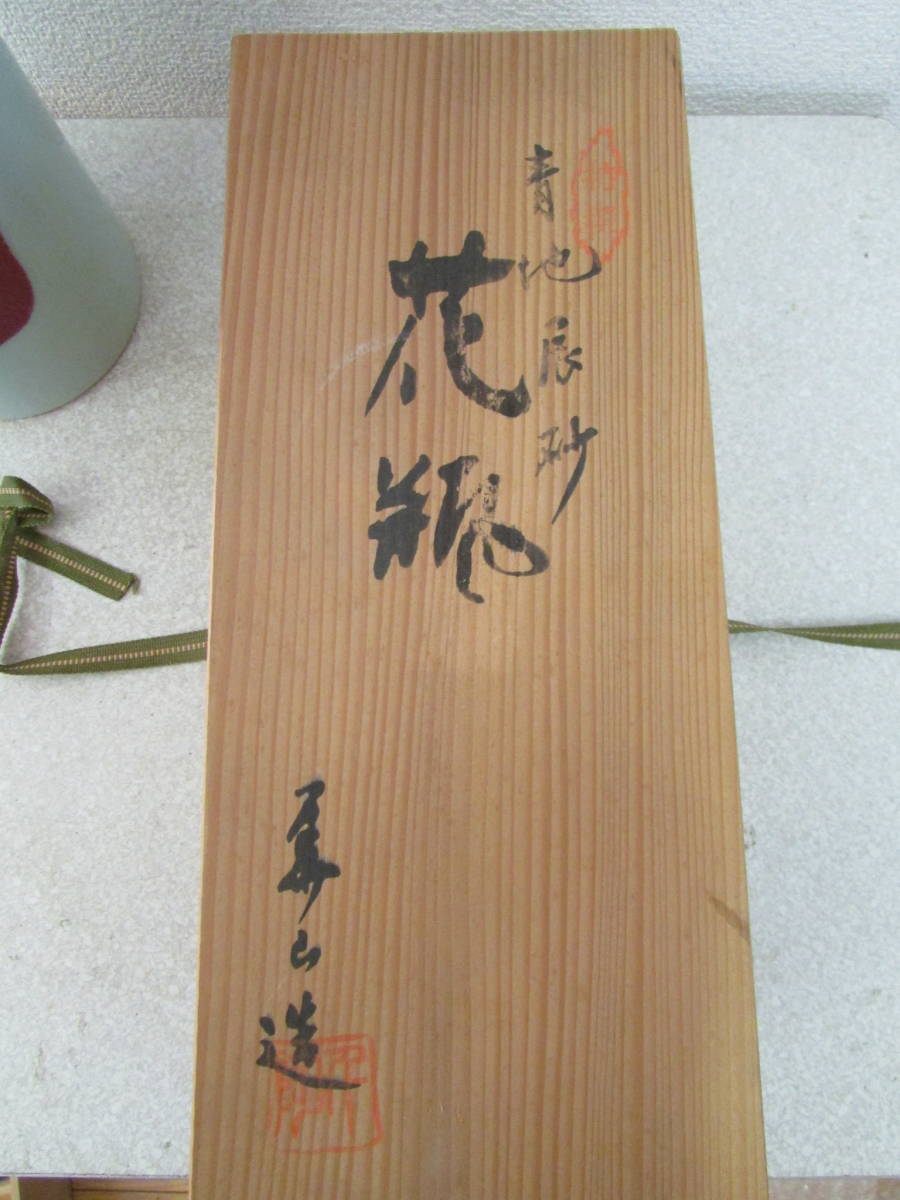 青地辰砂
花瓶
山造